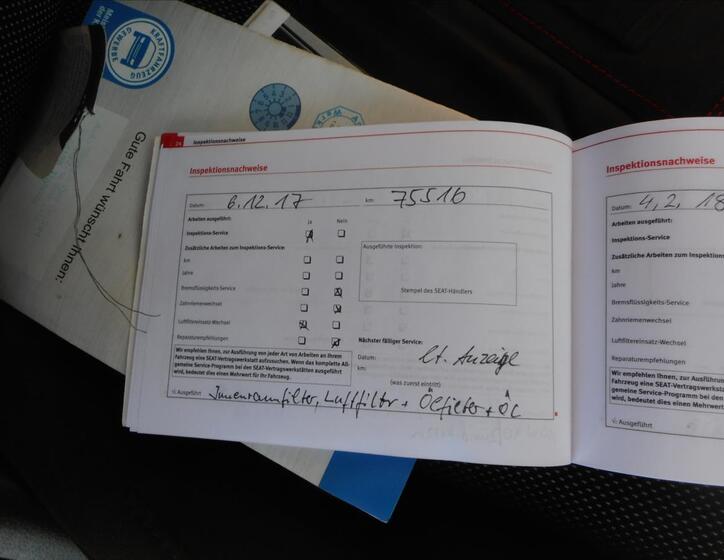 KRAFTFAHRZEUG
GEWERBE
Gute Fahrt wünscht Ihnen:
24 Inspektionsnachweise
Inspektionsnachweise
Datum: 6.12.17 km 75516
Arbeiten ausgeführt: Ja Nein
Inspektions-Service
Zusätzliche Arbeiten zum Inspektions-Service:
km
Jahre
Bremsflüssigkeits-Service
Zahnriemenwechsel
Luftfiltereinsatz-Wechsel
Reparaturempfehlungen
Ausgeführte Inspektion:
Stempel des SEAT-Händlers
Wir empfehlen Ihnen, zur Ausführung von jeder Art von Arbeiten an Ihrem
Fahrzeug eine SEAT-Vertragswerkstatt aufzusuchen. Wenn das komplette All-
gemeine Service-Programm bei den SEAT-Vertragswerkstätten ausgeführt
wird, bedeutet dies einen Mehrwert für Ihr Fahrzeug.
Nächster fälliger Service:
Datum: lt. Anzeige
km:
(was zuerst eintritt)
Ausgeführt Innenraumfilter, Luftfilter + Ölfilter + Öl
Inspektionsnachweise
Datum: 4.2.18
Arbeiten ausgeführt:
Inspektions-Service
Zusätzliche Arbeiten zum Inspektions
km
Jahre
Bremsflüssigkeits-Service
Zahnriemenwechsel
Luftfiltereinsatz-Wechsel
Reparaturempfehlungen
Wir empfehlen Ihnen, zur Ausführung
Fahrzeug eine SEAT-Vertragswerkstatt
gemeine Service-Programm bei den
wird, bedeutet dies einen Mehrwert
Ausgeführt